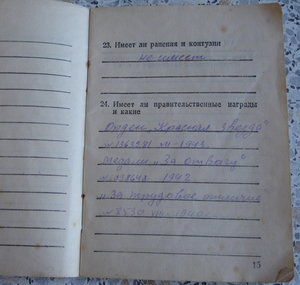 23. Имеет ли ранения и контузии
не имеет
24. Имеет ли правительственные награды
и какие
Орден „Красная звезда"
м-1943
медали „За отвагу"
1942
„За трудовое отличие
1940
15